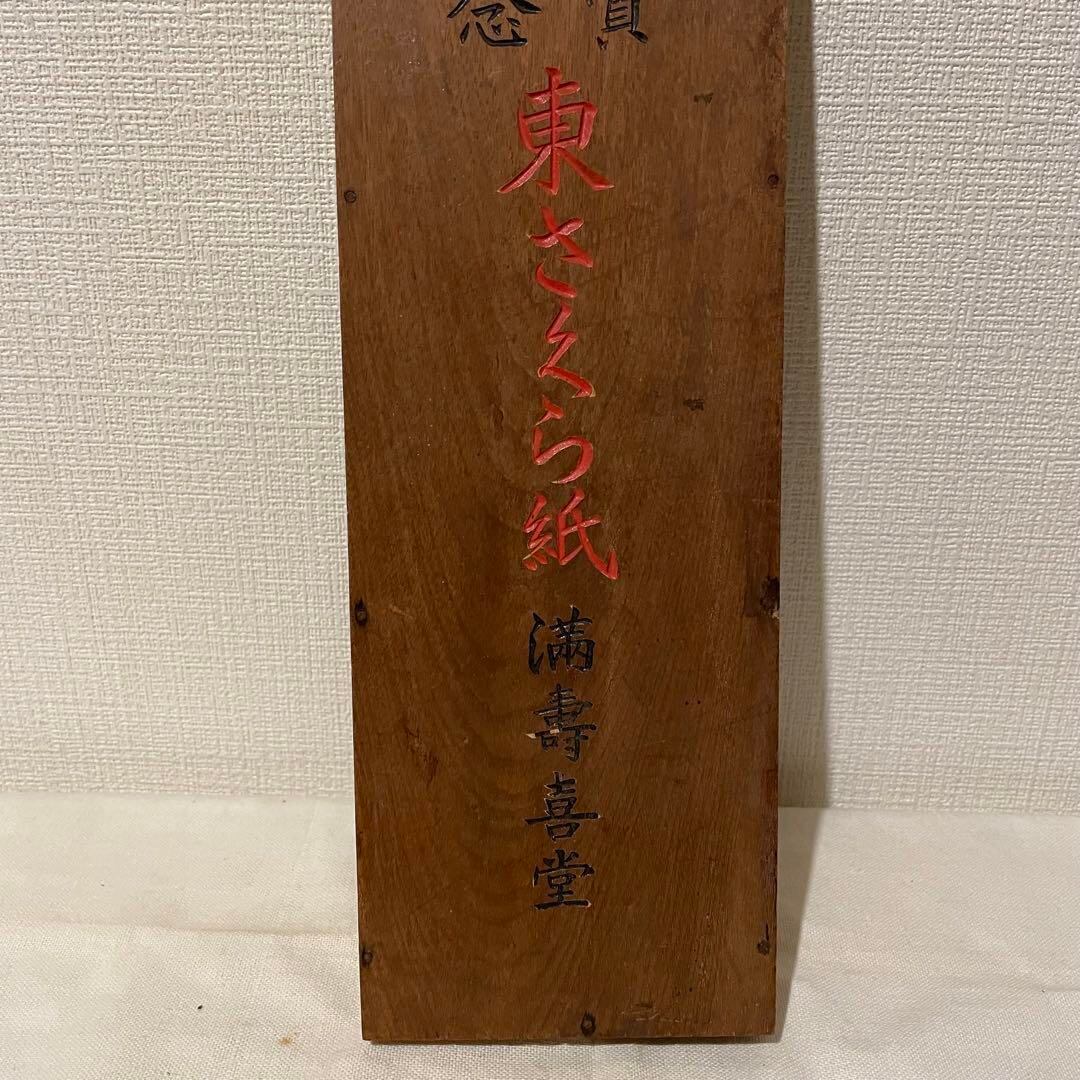 念
東さくら紙
満壽喜堂